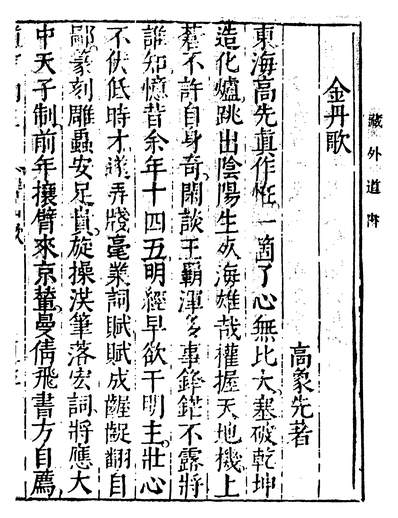 藏外道書
金丹歌
高象先著
東海高先真作怪一箇了心無比大塞破乾坤
造化爐跳出陰陽生死海雄哉權握天地機上
蒼不許自身奇閑談王霸渾多事鋒鋩不露將
誰知憶昔余年十四五明經早欲干明主壯心
不伏低時才遂弄殘毫業詞賦賦成齷齪翻自
鄙篆刻雕蟲安足貴旋操洪筆落宏詞將應大
中天子制前年攘臂來京輦曼倩飛書方自薦